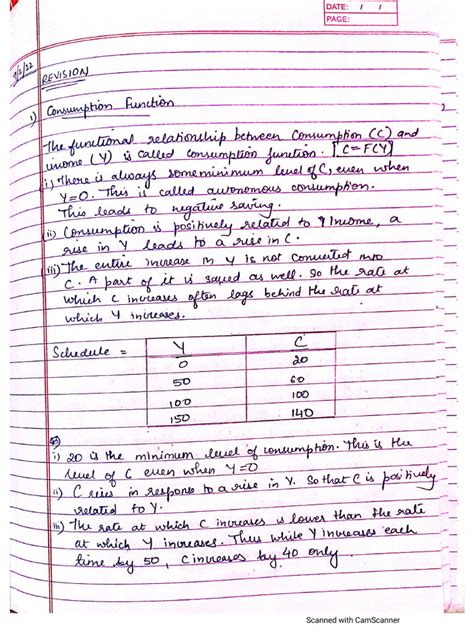 DATE: / /
PAGE:
9/2/22
REVISION
1) Consumption Function
The functional relationship between Consumption (C) and
income (Y) is called consumption function. [C = F(Y)]
i) There is always some minimum level of C, even when
Y=0. This is called autonomous consumption.
This leads to negative saving.
(ii) Consumption is positively related to Income, a
rise in Y leads to a rise in C.
(iii) The entire increase in Y is not converted into
C. A part of it is saved as well. So the rate at
which C increases often lags behind the rate at
which Y increases.
Schedule = Y C
0 20
50 60
100 100
150 140
i) 20 is the minimum level of consumption. This is the
level of C even when Y=0
(ii) C rises in response to a rise in Y. So that C is positively
related to Y.
(iii) The rate at which C increases is lower than the rate
at which Y increases. Thus while Y increases each
time by 50, C increases by 40 only.
Scanned with CamScanner